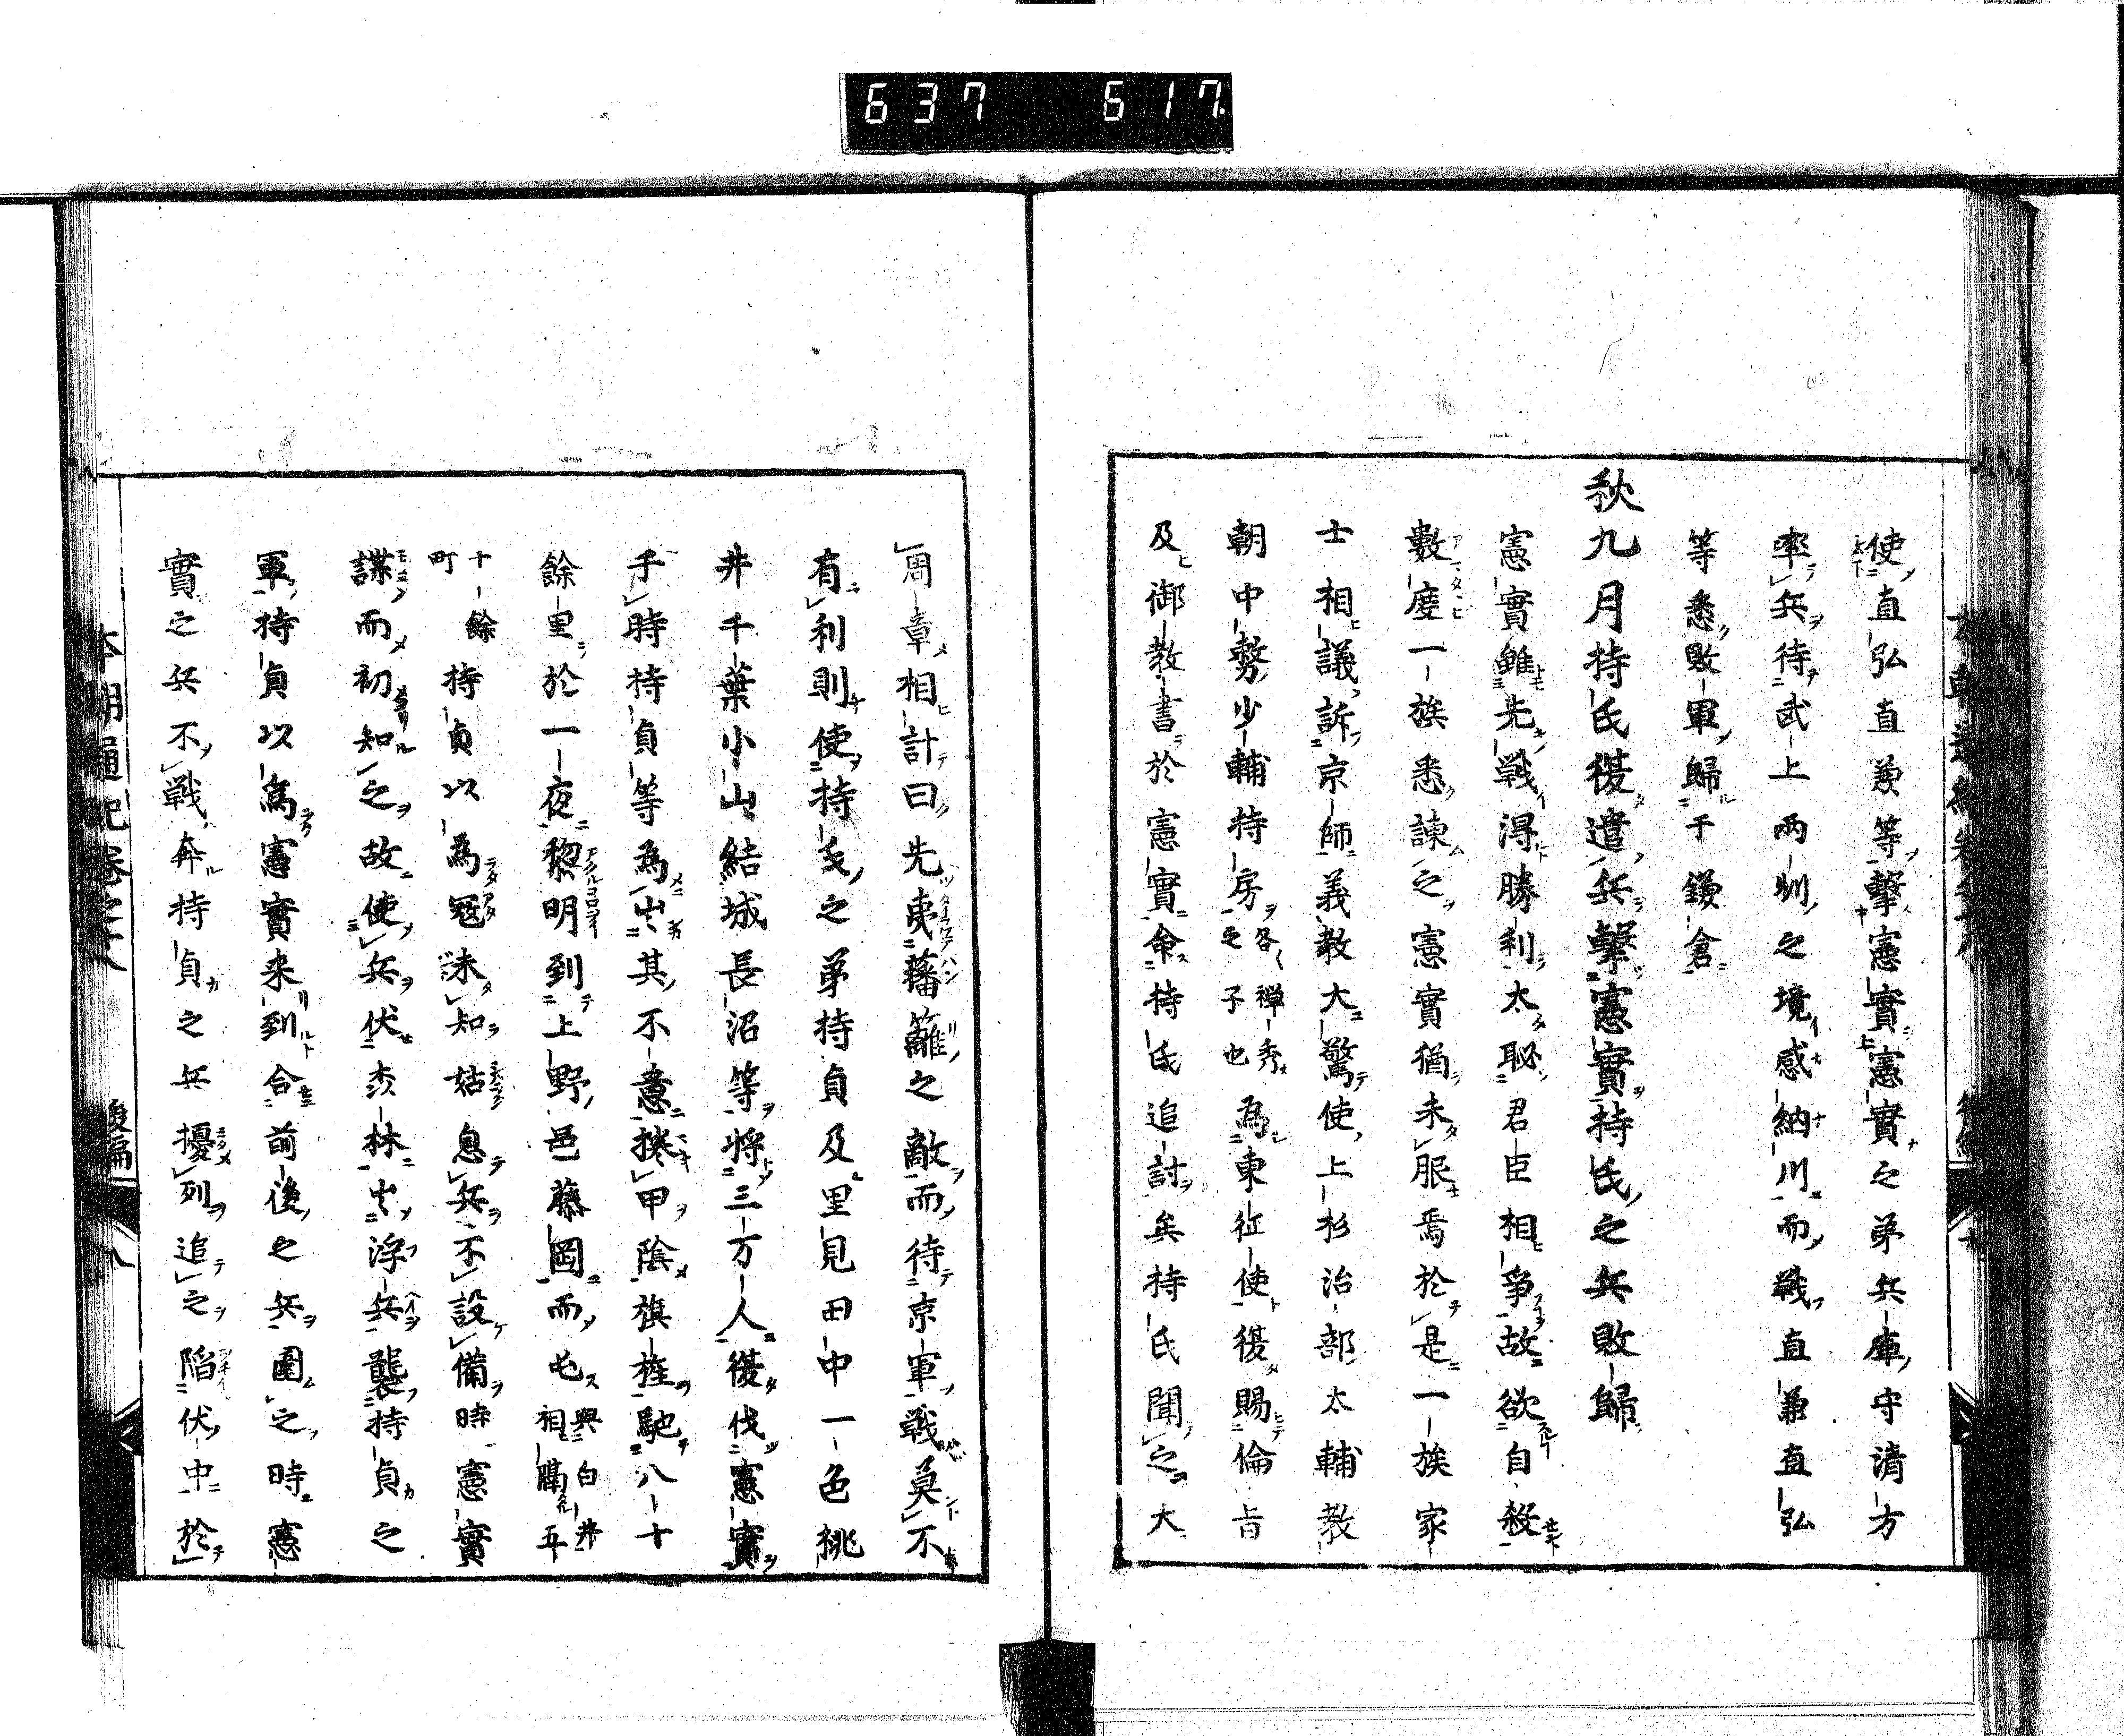 637 617
使直弘直兼等擊憲實憲實之弟兵庫守清方
率兵待武上兩州之境感納川而戰直兼直弘
等悉敗軍歸于鎌倉
秋九月持氏復遣兵擊憲實持氏之兵敗歸
憲實雖先戰得勝利太恥君臣相爭故欲自殺
數度一族悉諫之憲實猶未服焉於是一族家
士相議訴京師義教大驚使上杉治部太輔教
朝中務少輔持房各禪秀之子也為東征使復賜倫旨
及御教書於憲實命持氏追討矣持氏聞之大
周章相計曰先夷藩籬之敵而待京軍戰莫不
有利則使持氏之弟持貞及里見田中一色桃
井千葉小山結城長沼等將三万人復伐憲實
于時持貞等為出其不意捲甲陰旗旌馳八十
餘里於一夜黎明到上野邑藤岡而屯與白井相隔五
十餘町持貞以為冦未知姑息兵不設備時憲實
諜而初知之故使兵伏茂林出浮兵襲持貞之
軍持貞以為憲實来到合前後之兵圍之時憲
實之兵不戰奔持貞之兵擾列追之陷伏中於
本朝通紀卷之
後編
八